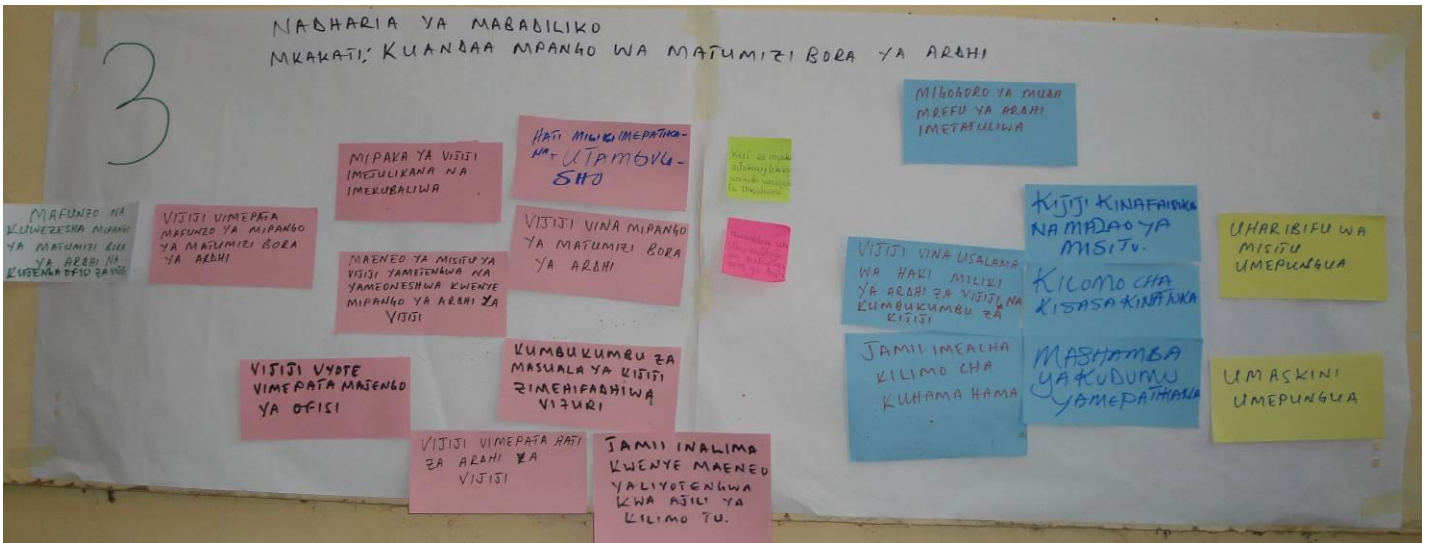 3
NADHARIA YA MABADILIKO
MKAKATI; KUANDAA MPANGO WA MATUMIZI BORA YA ARDHI
MAFUNZO NA
KUWEZESHA MIPANGO
YA MATUMIZI BORA
YA ARDHI NA
KUJENGA OFISI ZA
VIJIJI VIMEPATA
MAFUNZO YA MIPANGO
YA MATUMIZI BORA
YA ARDHI
MIPAKA YA VIJIJI
IMEJULIKANA NA
IMEKUBALIWA
MAENEO YA MISITU YA
VIJIJI YAMETENGWA NA
YAMEONESHWA KWENYE
MIPANGO YA ARDHI ZA
VIJIJI
VIJIJI VYOTE
VIMEPATA MAJENGO
YA OFISI
HATI MILIKI IMEPATIKA-
NA - UTAMBULI-
SHO
VIJIJI VINA MIPANGO
YA MATUMIZI BORA
YA ARDHI
KUMBUKUMBU ZA
MASUALA YA KIJIJI
ZIMEHIFADHIWA
VIZURI
VIJIJI VIMEPATA HATI
ZA ARDHI ZA
VIJIJI
JAMII INALIMA
KWENYE MAENEO
YALIYOTENGWA
KWA AJILI YA
KILIMO TU.
Kesi za
MIGOGORO YA MUDA
MREFU YA ARDHI
IMETATULIWA
VIJIJI VINA USALAMA
WA HAKI MILIKI
YA ARDHI ZA VIJIJI NA
KUMBUKUMBU ZA
KIJIJI
JAMII IMEACHA
KILIMO CHA
KUHAMA HAMA
KIJIJI KINAFAIDIKA
NA MAZAO YA
MISITU.
KILOMO CHA
KISASA KINAFANYIKA
MASHAMBA
YA KUDUMU
YAMEPATIKANA
UHARIBIFU WA
MISITU
UMEPUNGUA
UMASKINI
UMEPUNGUA